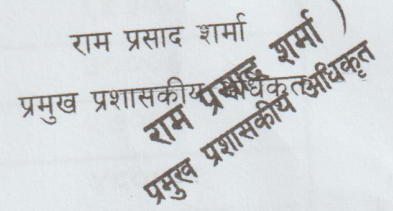 राम प्रसाद शर्मा
प्रमुख प्रशासकीय अधिकृत
राम प्रसाद शर्मा
प्रमुख प्रशासकीय अधिकृत